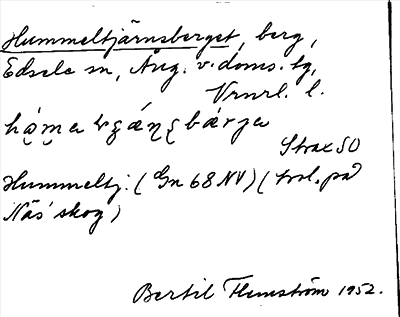 Hummeltjärnsberget, berg,
Edsele sn, Ång. v. doms. tg,
Vrnrl. l.
Strax SO
Hummeltj. (Gn 68 NV) (trol. på
Näs' skog)
Bertil Flemström 1952.